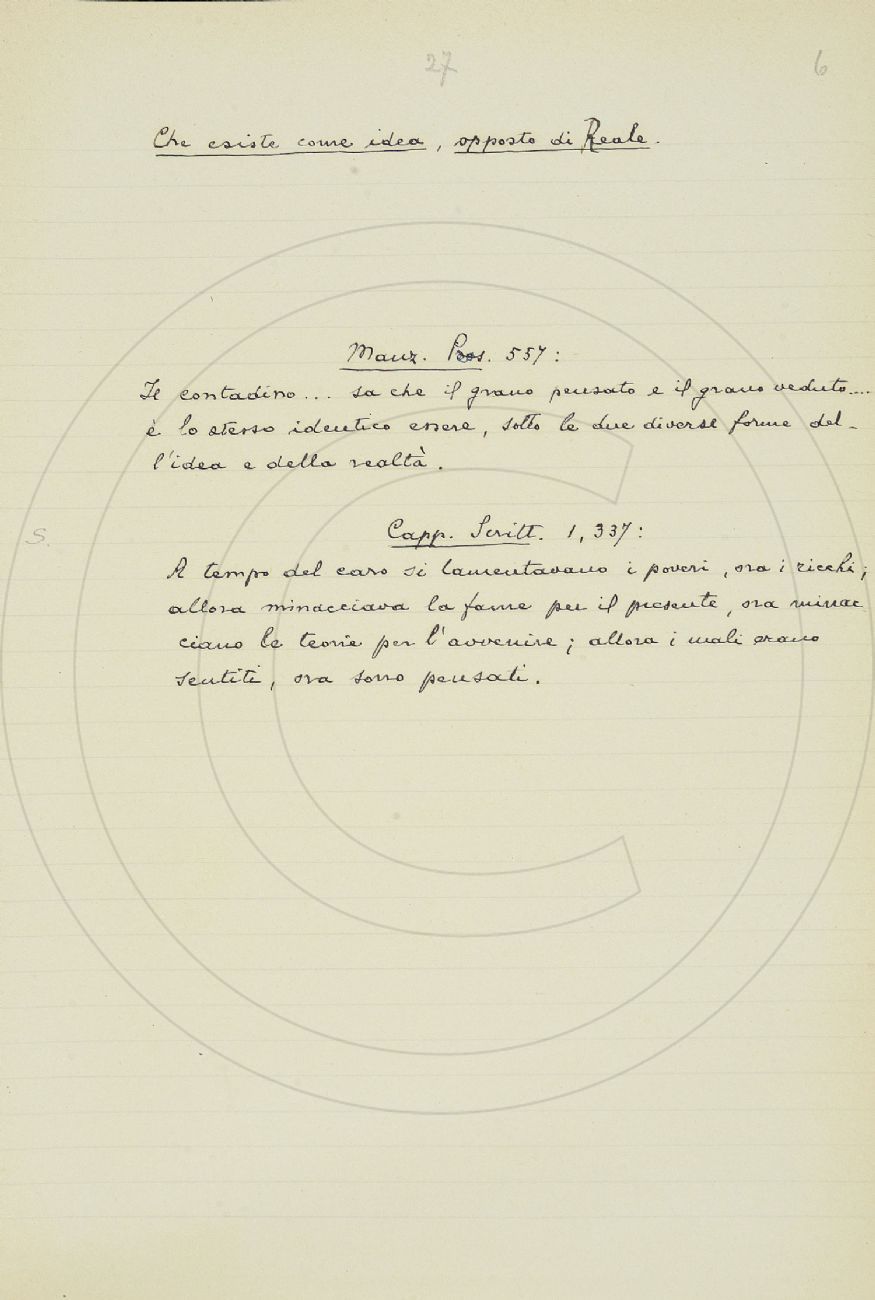 27 6
Che esiste come idea, opposto di Reale.
Manz. Pros. 557:
Il contadino... sa che il grano pensato e il grano veduto....
è lo stesso identico essere, sotto le due diverse forme del-
l'idea e della realtà.
Capp. Scritt. 1, 337:
S.
A tempo del caro si lamentavano i poveri, ora i ricchi;
allora minacciava la fame per il presente, ora minac
ciano le teorie per l'avvenire; allora i mali erano
sentiti, ora sono pensati.